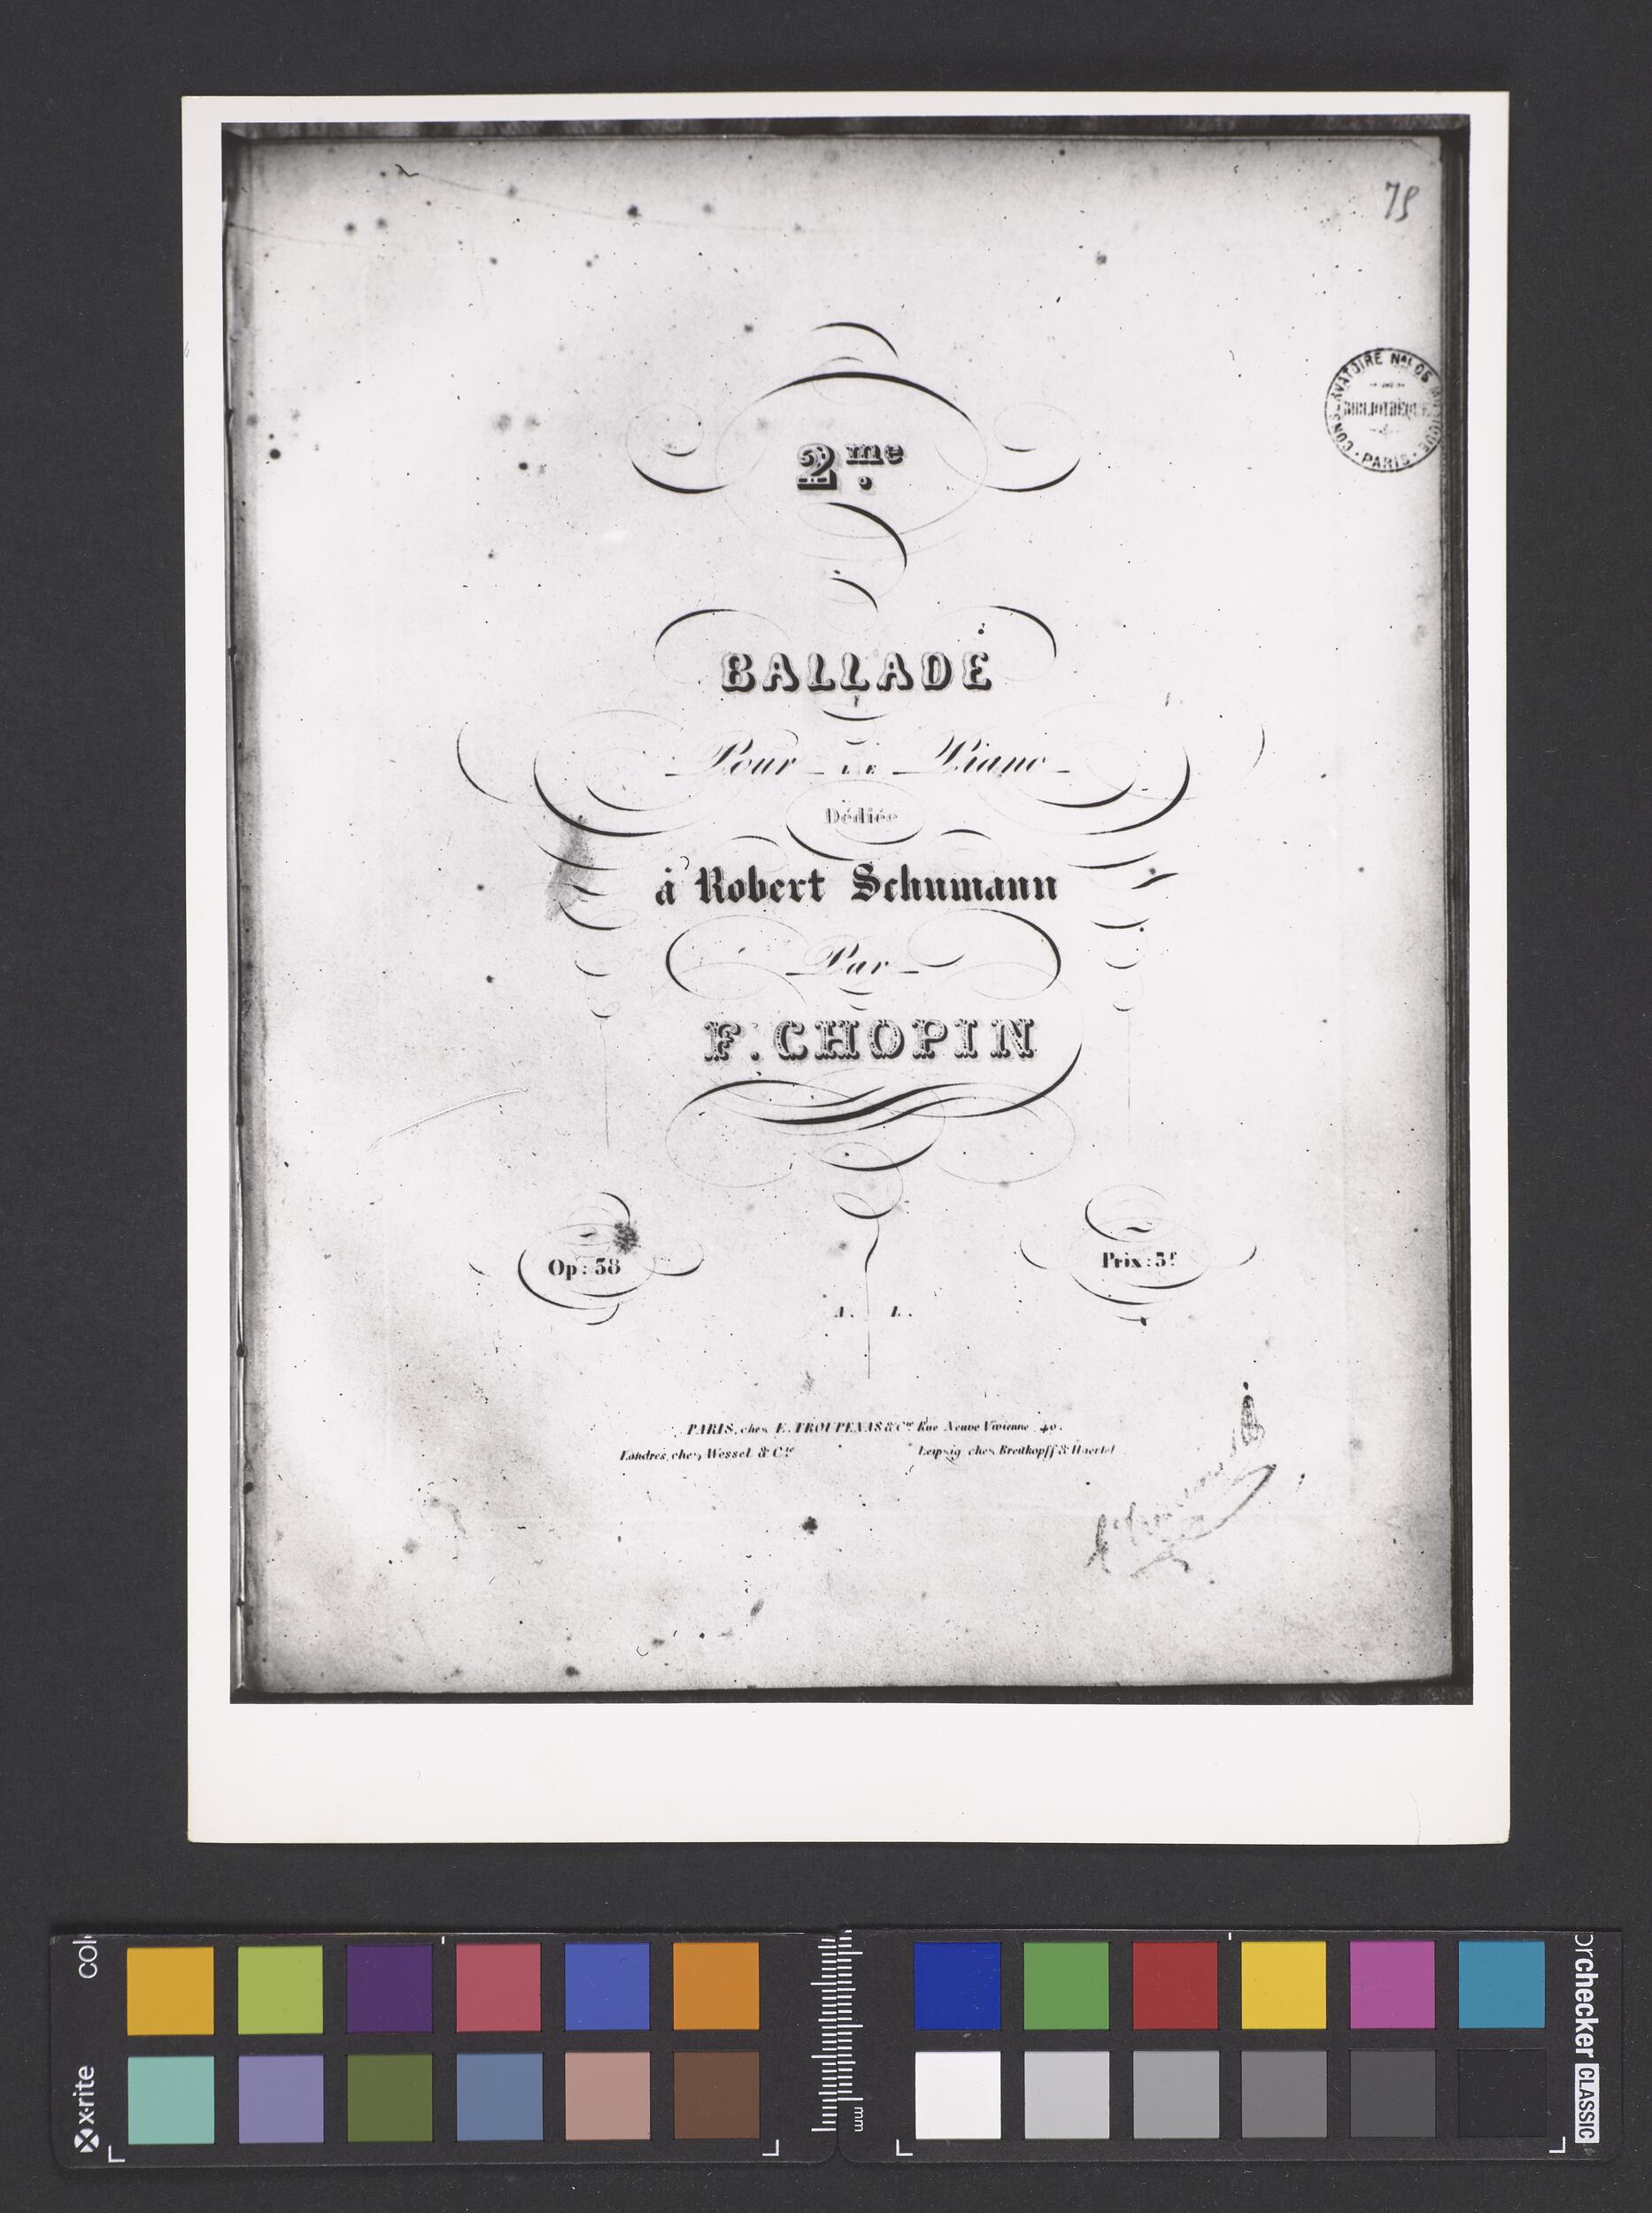 79
CONSERVATOIRE Nal DE MUSIQUE
BIBLIOTHÈQUE
· PARIS ·
2me.
BALLADE
Pour LE Piano
Dédiée
à Robert Schumann
Par
F. CHOPIN
Op: 38
Prix: 5f
A. L.
PARIS, chez E. TROUPENAS & Cie Rue Neuve Vivienne, 40.
Londres, chez Wessel & Cie
Leipsig chez Breitkopff & Haertel
x-rite
col
mm
orchecker CLASSIC